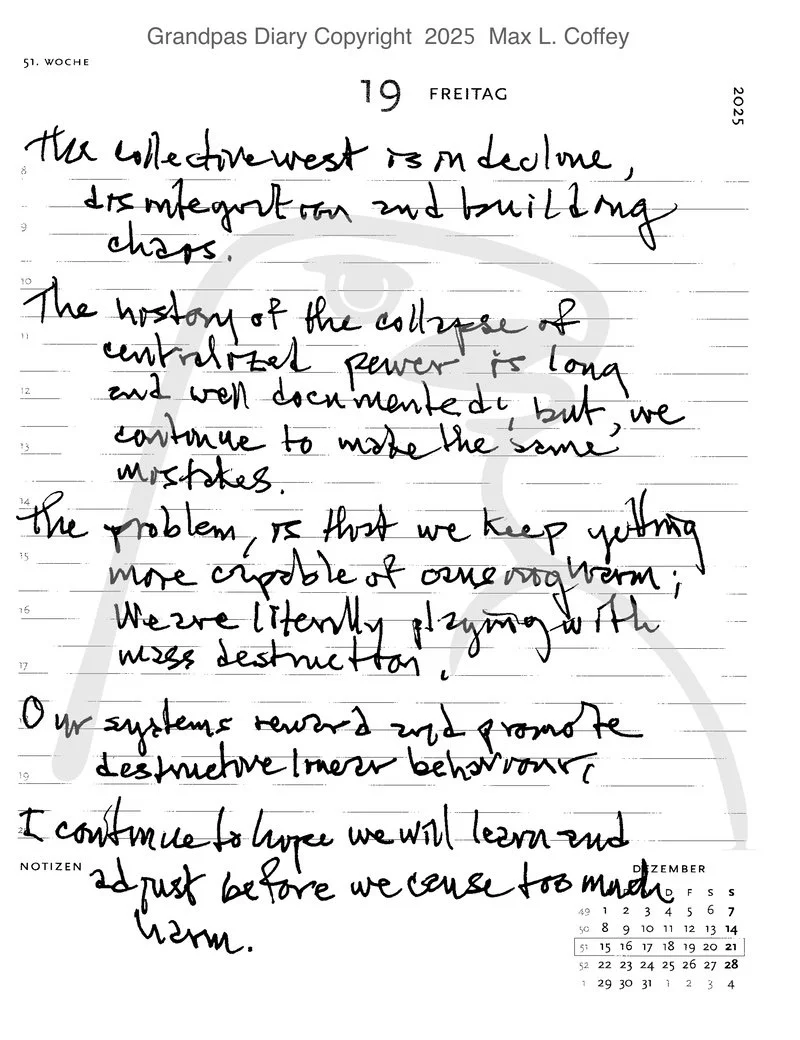 Grandpas Diary Copyright 2025 Max L. Coffey
51. WOCHE
19 FREITAG
2025
The collective west is in decline,
disintegration and building
chaos.
The history of the collapse of
centralized power is long
and well documented, but, we
continue to make the same
mistakes.
The problem, is that we keep getting
more capable of causing harm;
We are literally playing with
mass destruction.
Our systems reward and promote
destructive linear behaviour,
I continue to hope we will learn and
adjust before we cause too much
harm.
8
9
10
11
12
13
14
15
16
17
19
NOTIZEN
DEZEMBER
D F S S
49 1 2 3 4 5 6 7
50 8 9 10 11 12 13 14
51 15 16 17 18 19 20 21
52 22 23 24 25 26 27 28
1 29 30 31 1 2 3 4